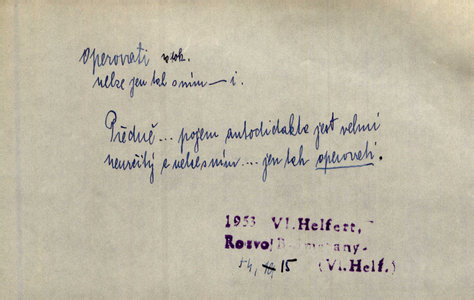 operovati
nelze jen tak s ním — i.
Předně... pojem autodidakta jest velmi
neurčitý a nelze s ním.... jen tak operovati.
1953 Vl. Helfert,
Rozvoj
54, 15 (Vl. Helf.)